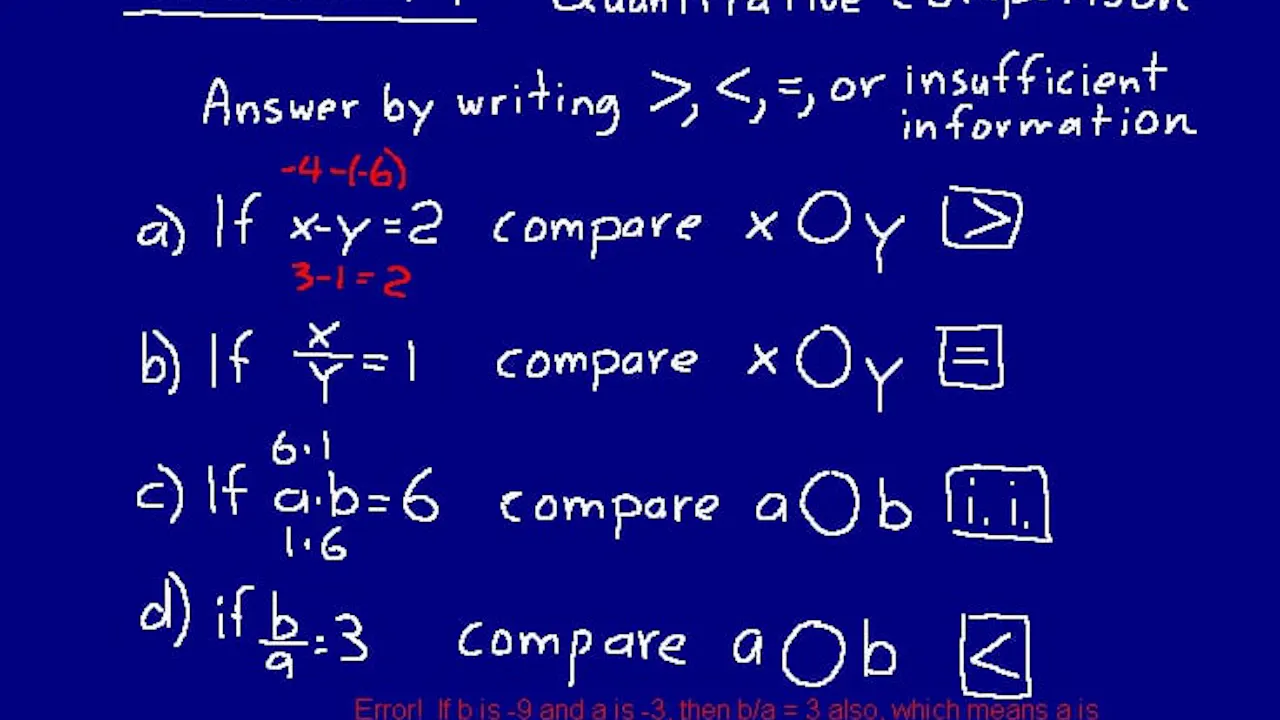 Quantitative Comparison
Answer by writing >, <, =, or insufficient information
-4-(-6)
a) If x-y=2 compare x O y >
3-1=2
b) If x/y = 1 compare x O y =
6·1
c) If a·b=6 compare a O b i.i.
1·6
d) if b/a = 3 compare a O b <
Error! If b is -9 and a is -3, then b/a = 3 also, which means a is